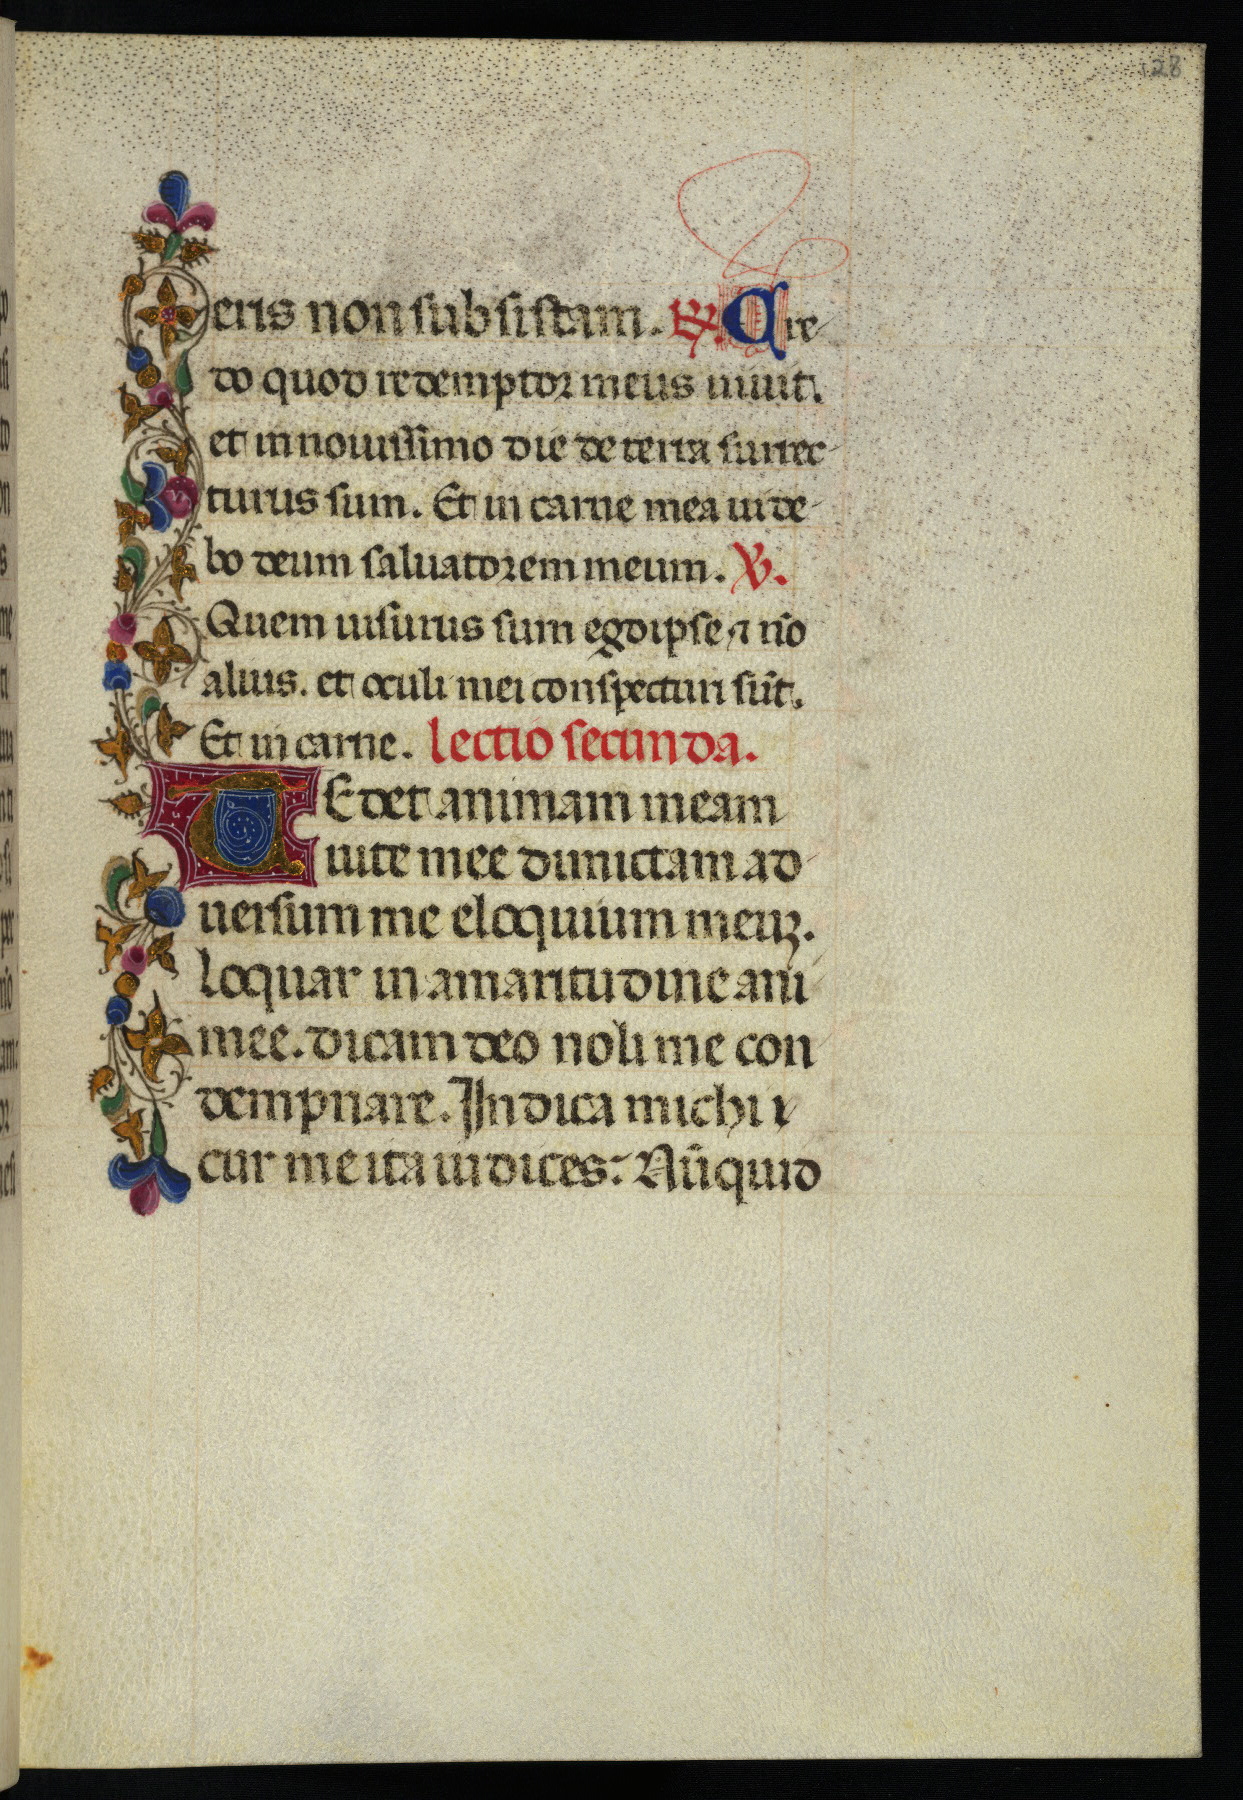 128
eris non subsistam. R. Cre
do quod redemptor meus uiuit.
et in nouissimo die de terra surrec
turus sum. Et in carne mea uide
bo deum saluatorem meum. V.
Quem uisurus sum ego ipse ⁊ nō
alius. et oculi mei conspecturi sūt.
Et in carne. lectio secunda.
TEdet animam meam
uite mee dimictam ad
uersum me eloquium meuꝫ.
loquar in amaritudine ani
mee. dicam deo noli me con
dempnare. Indica michi
cur me ita iudices: Nūquid